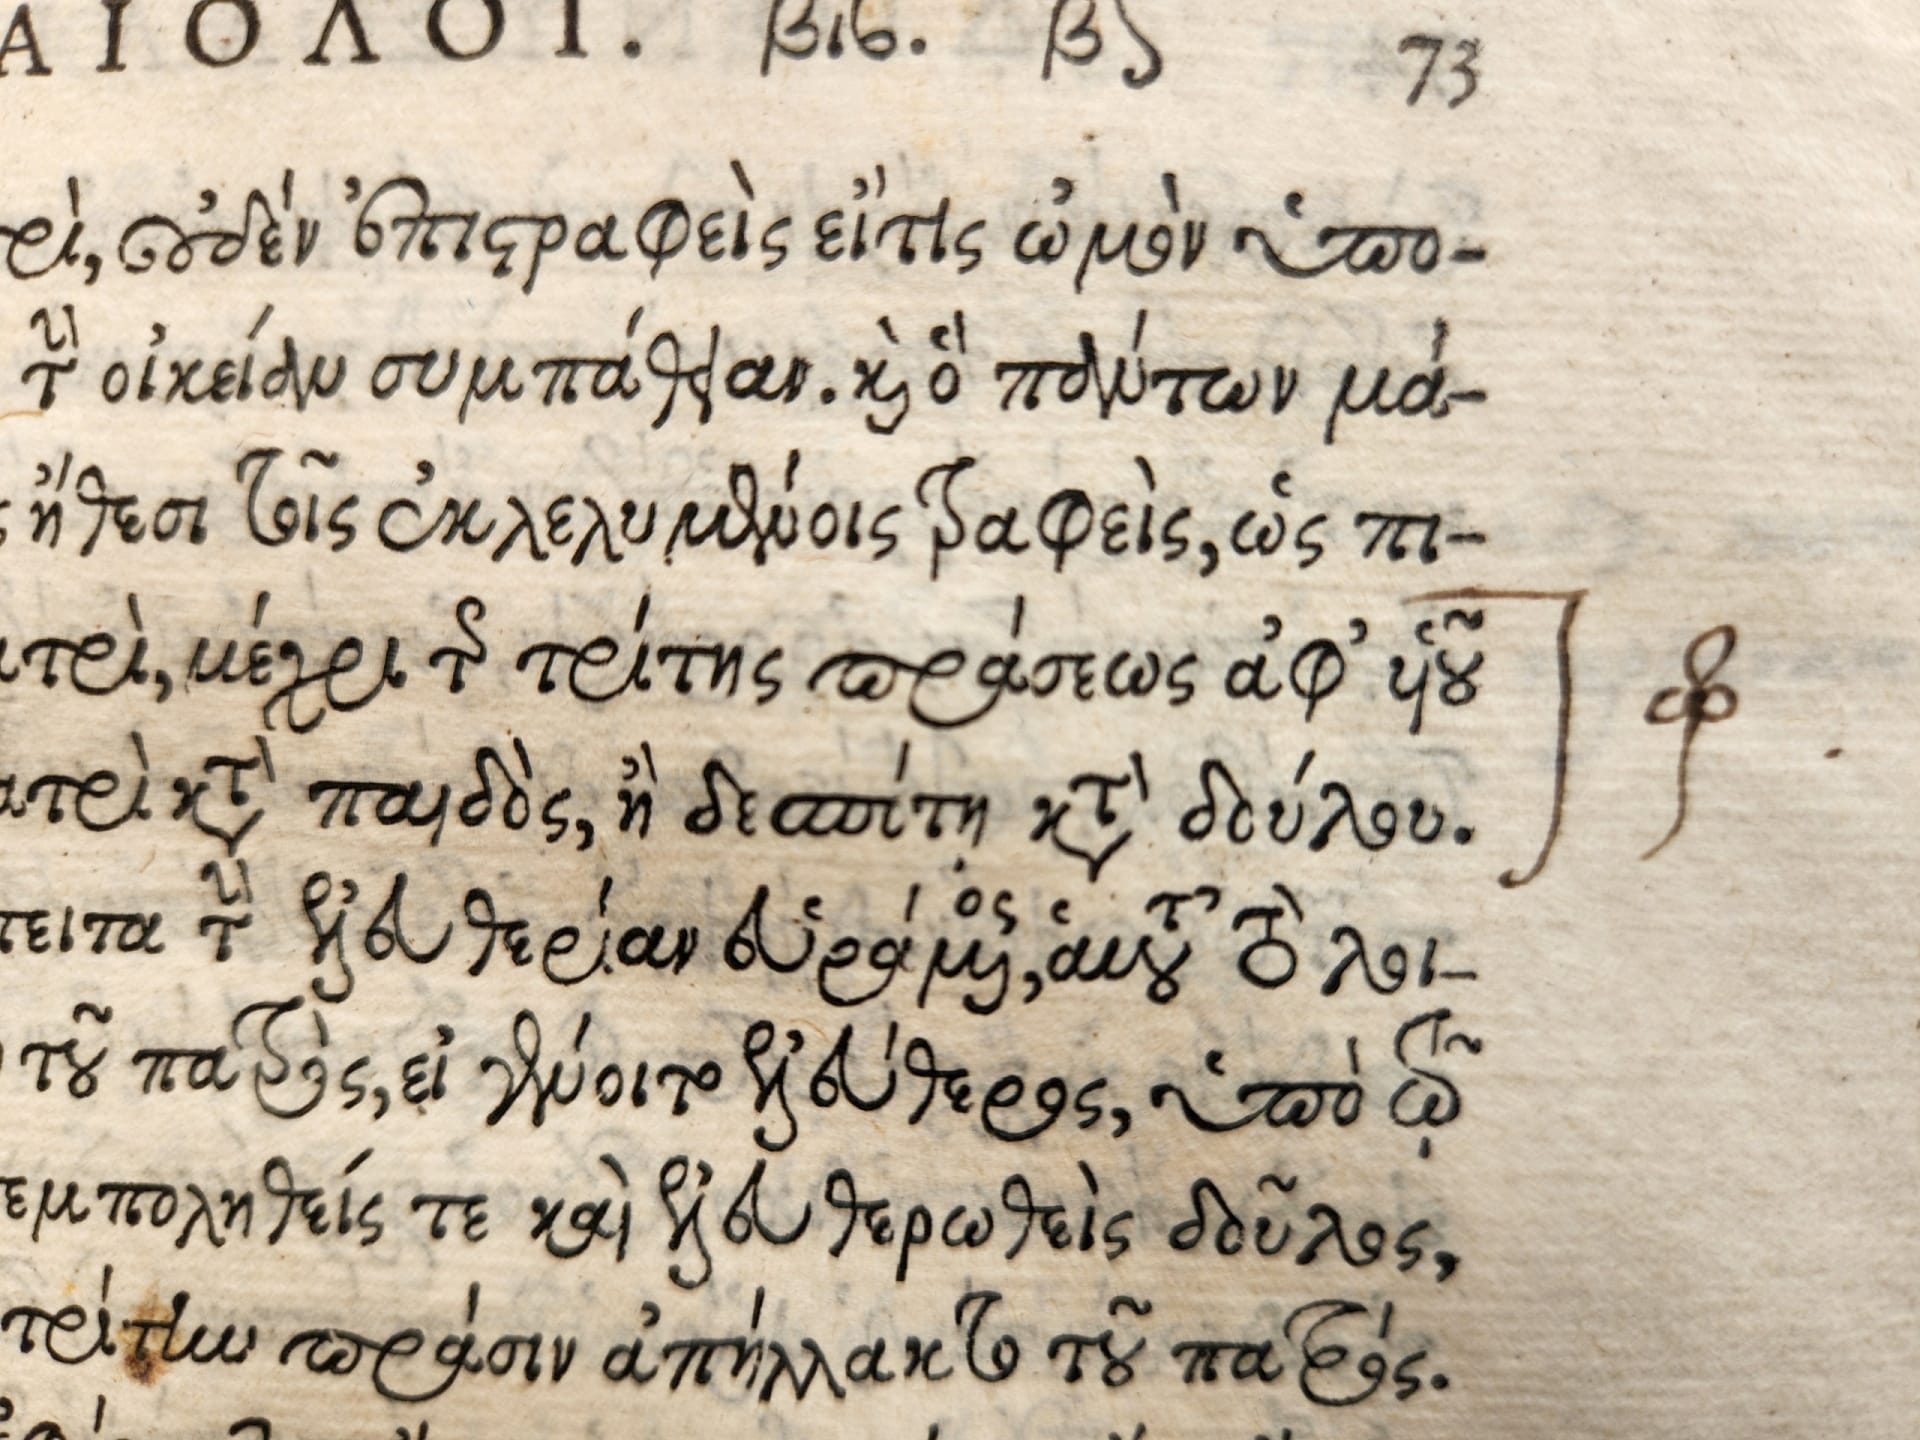 ΑΙΟΛΟΙ. βιβ. β 73
ρὶ, οὐδὲν ἐπιστραφεὶς εἴτις ὠμὸν ὑπο-
τὴν οἰκείαν συμπάθειαν. καὶ ὃ πάντων μά-
ς ἤθεσι τοῖς ἐκλελυμένοις τραφεὶς, ὡς πι-
ατρὶ, μέχρι τῆς τρίτης πράσεως ἀφ' υἱοῦ
ατρὶ κατὰ παιδὸς, ἢ δεσπότῃ κατὰ δούλου.
πειτα τὴν ἐλευθερίαν εὑράμενος, ἑαυτοῦ τὸ λοι-
τοῦ πατρὸς, εἰ γένοιτο ἐλεύθερος, ὑπὸ τῷ
εμποληθείς τε καὶ ἐλευθερωθεὶς δοῦλος,
τρίτην πρᾶσιν ἀπήλλακτο τοῦ πατρός.